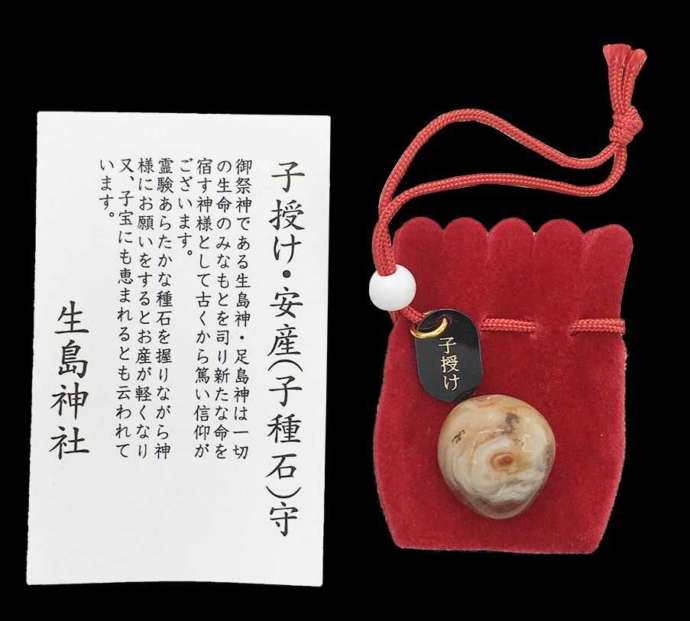 子授け・安産(子種石)守
御祭神である生島神・足島神は一切
の生命のみなもとを司り新たな命を
宿す神様として古くから篤い信仰が
ございます。
霊験あらたかな種石を握りながら神
様にお願いをするとお産が軽くなり
又、子宝にも恵まれるとも云われて
います。
生島神社
子授け